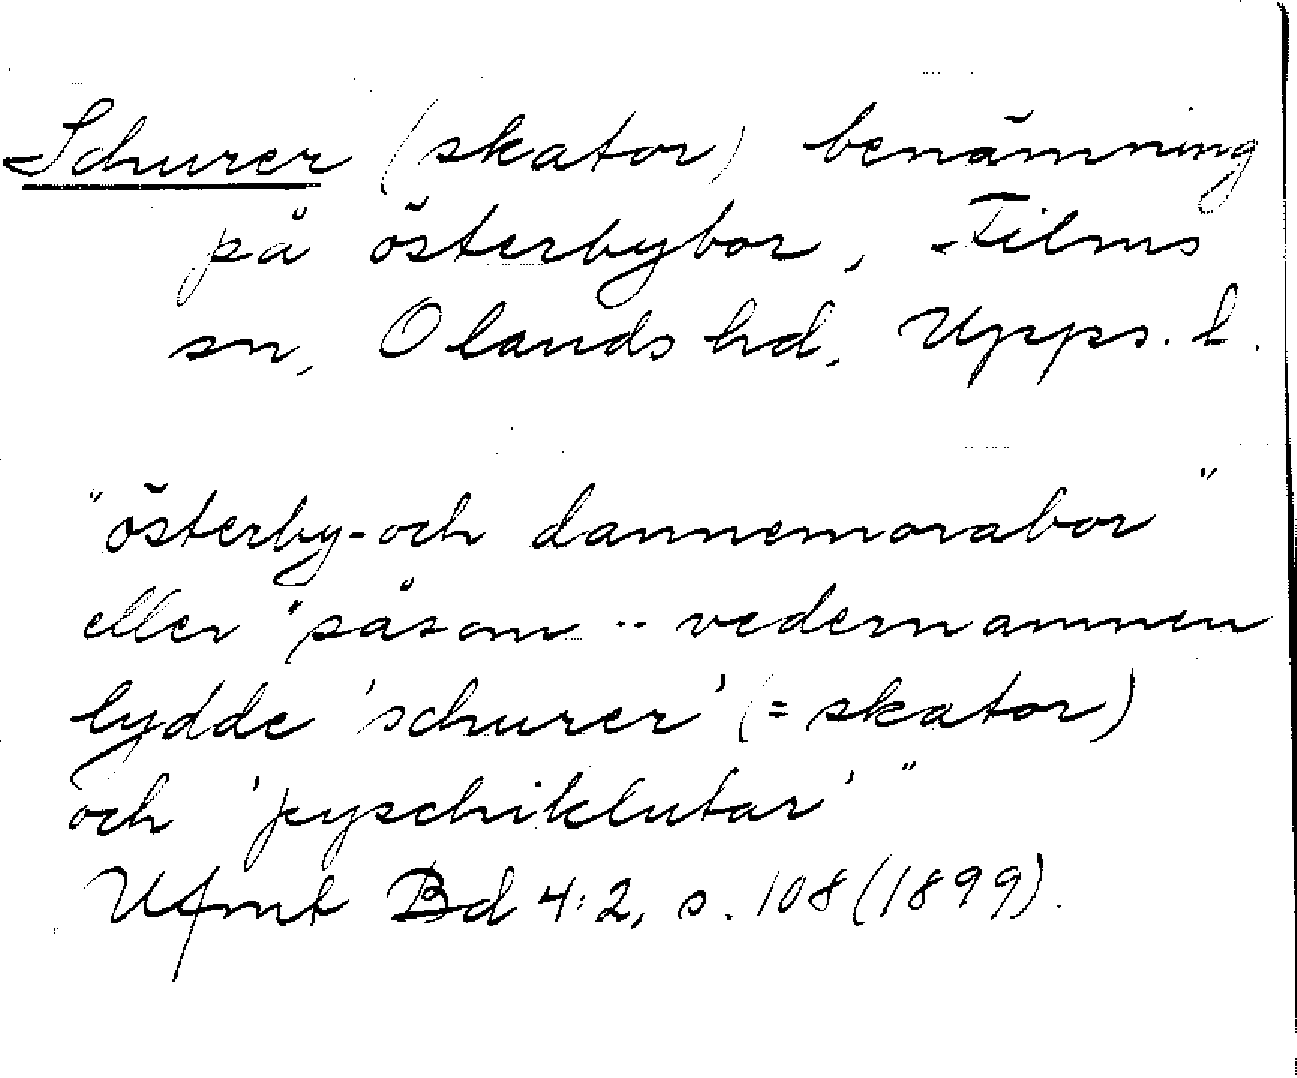 Schurer (skator) benämning
på österbybor, Films
sn, Olands hd, Upps. L.
"österby- och dannemorabor"
eller "såsom .. vedernamnen
lydde 'schurer' (= skator)
och 'pyschiklutar'"
Ufmt Bd 4:2, s. 108 (1899).